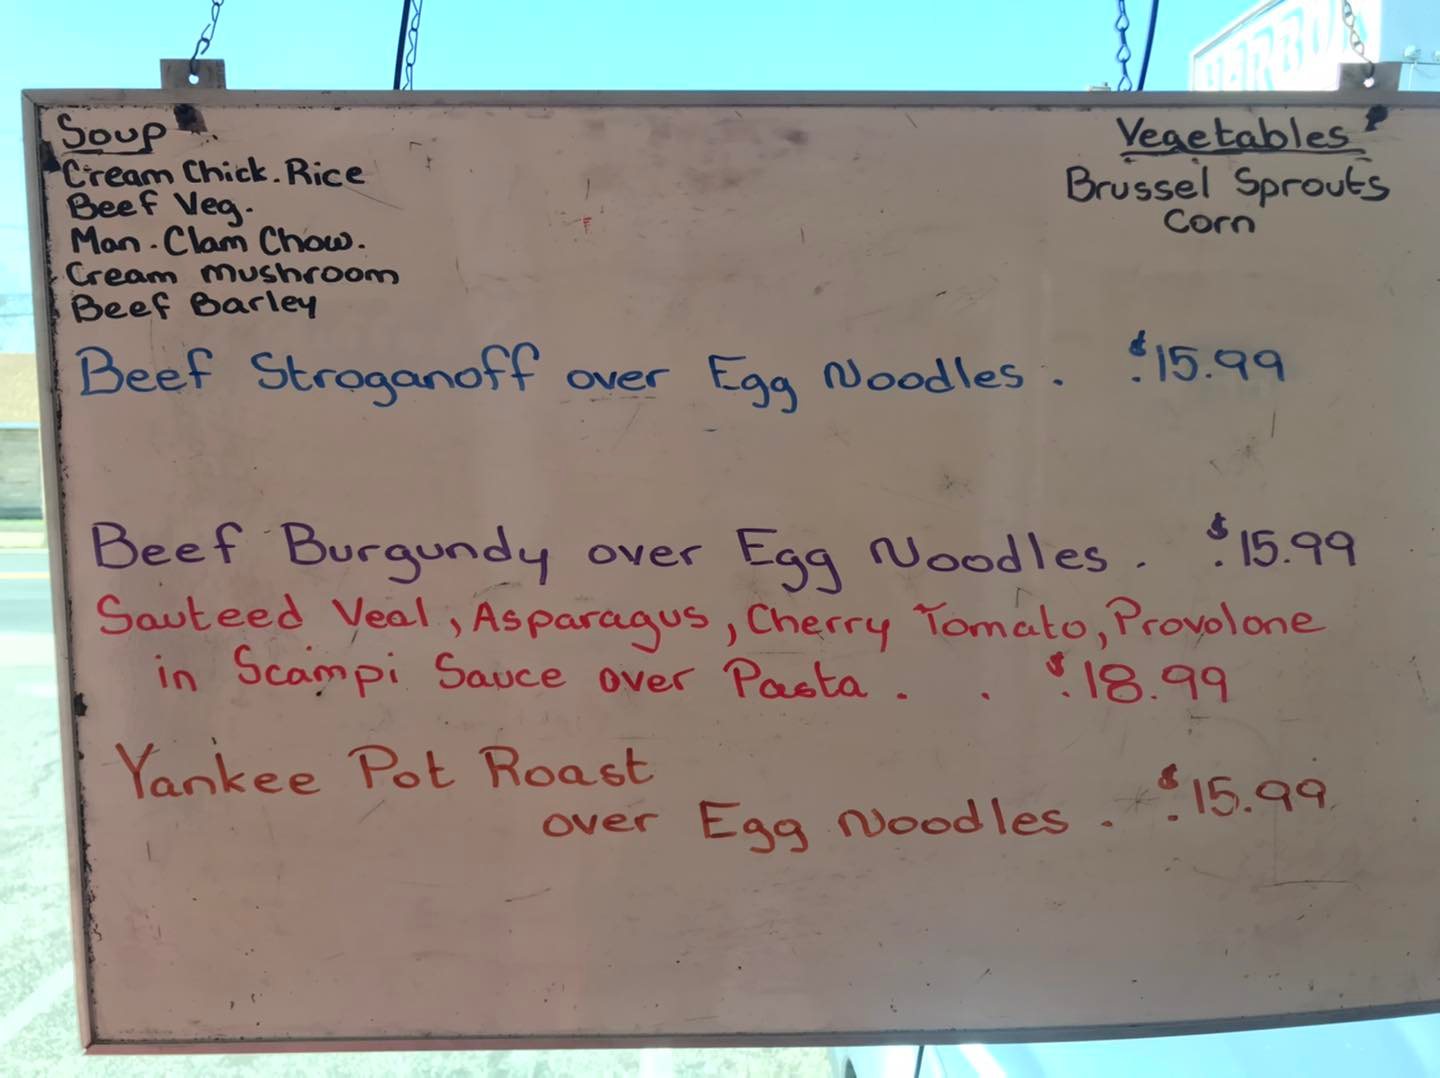 HARBO
Soup
Cream Chick. Rice
Beef Veg.
Man. Clam Chow.
Cream mushroom
Beef Barley
Vegetables
Brussel Sprouts
Corn
Beef Stroganoff over Egg Noodles . . $15.99
Beef Burgundy over Egg Noodles . . $15.99
Sauteed Veal, Asparagus, Cherry Tomato, Provolone
in Scampi Sauce over Pasta . . . $18.99
Yankee Pot Roast
over Egg Noodles . . $15.99